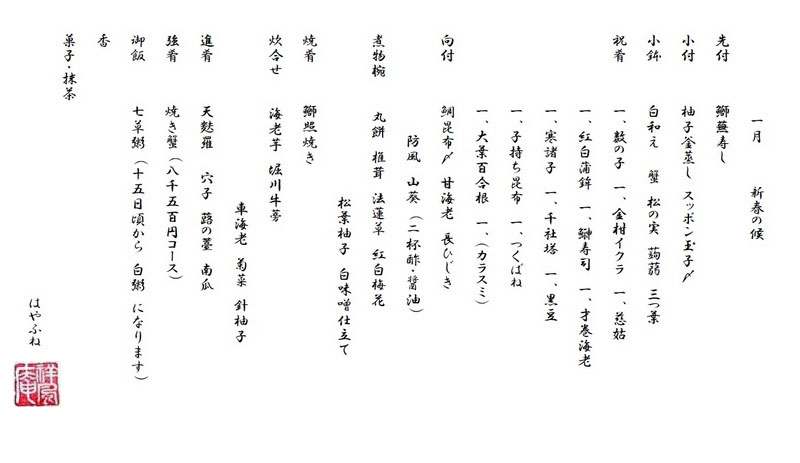 一月　新春の候
先付　鰤蕪寿し
小付　柚子釜蒸し　スッポン玉子〆
小鉢　白和え　蟹　松の実　蒟蒻　三つ葉
祝肴　一、数の子　一、金柑イクラ　一、慈姑
一、紅白蒲鉾　一、鰰寿司　一、才巻海老
一、寒諸子　一、千社塔　一、黒豆
一、子持ち昆布　一、つくばね
一、大葉百合根　一、（カラスミ）
向付　鯛昆布〆　甘海老　長ひじき
防風　山葵（二杯酢・醤油）
煮物椀　丸餅　椎茸　法蓮草　紅白梅花
松葉柚子　白味噌仕立て
焼肴　鰤照焼き
炊合せ　海老芋　堀川牛蒡
車海老　菊菜　針柚子
進肴　天麩羅　穴子　蕗の薹　南瓜
強肴　焼き蟹（八千五百円コース）
御飯　七草粥（十五日頃から　白粥　になります）
香
菓子・抹茶
はやふね